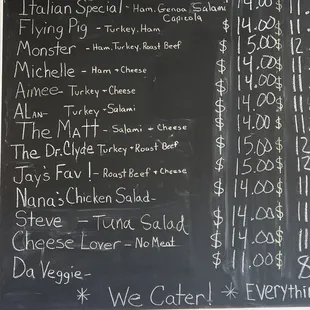 Italian Special - Ham, Genoa, Salami $ 14.00 $
Capicola
Flying Pig - Turkey, Ham $ 14.00 $ 11
Monster - Ham, Turkey, Roast Beef $ 15.00 $ 12
Michelle - Ham + Cheese $ 14.00 $ 11
Aimee - Turkey + Cheese $ 14.00 $ 11
Alan - Turkey - Salami $ 14.00 $ 11
The Matt - Salami + Cheese $ 14.00 $ 11
The Dr. Clyde Turkey + Roast Beef $ 15.00 $ 12
Jay's Fav! - Roast Beef + Cheese $ 15.00 $ 12
Nana's Chicken Salad - $ 14.00 $ 11
Steve - Tuna Salad $ 14.00 $ 11
Cheese Lover - No Meat $ 14.00 $ 11
Da Veggie - $ 11.00 $ 8
* We Cater! * Everythin